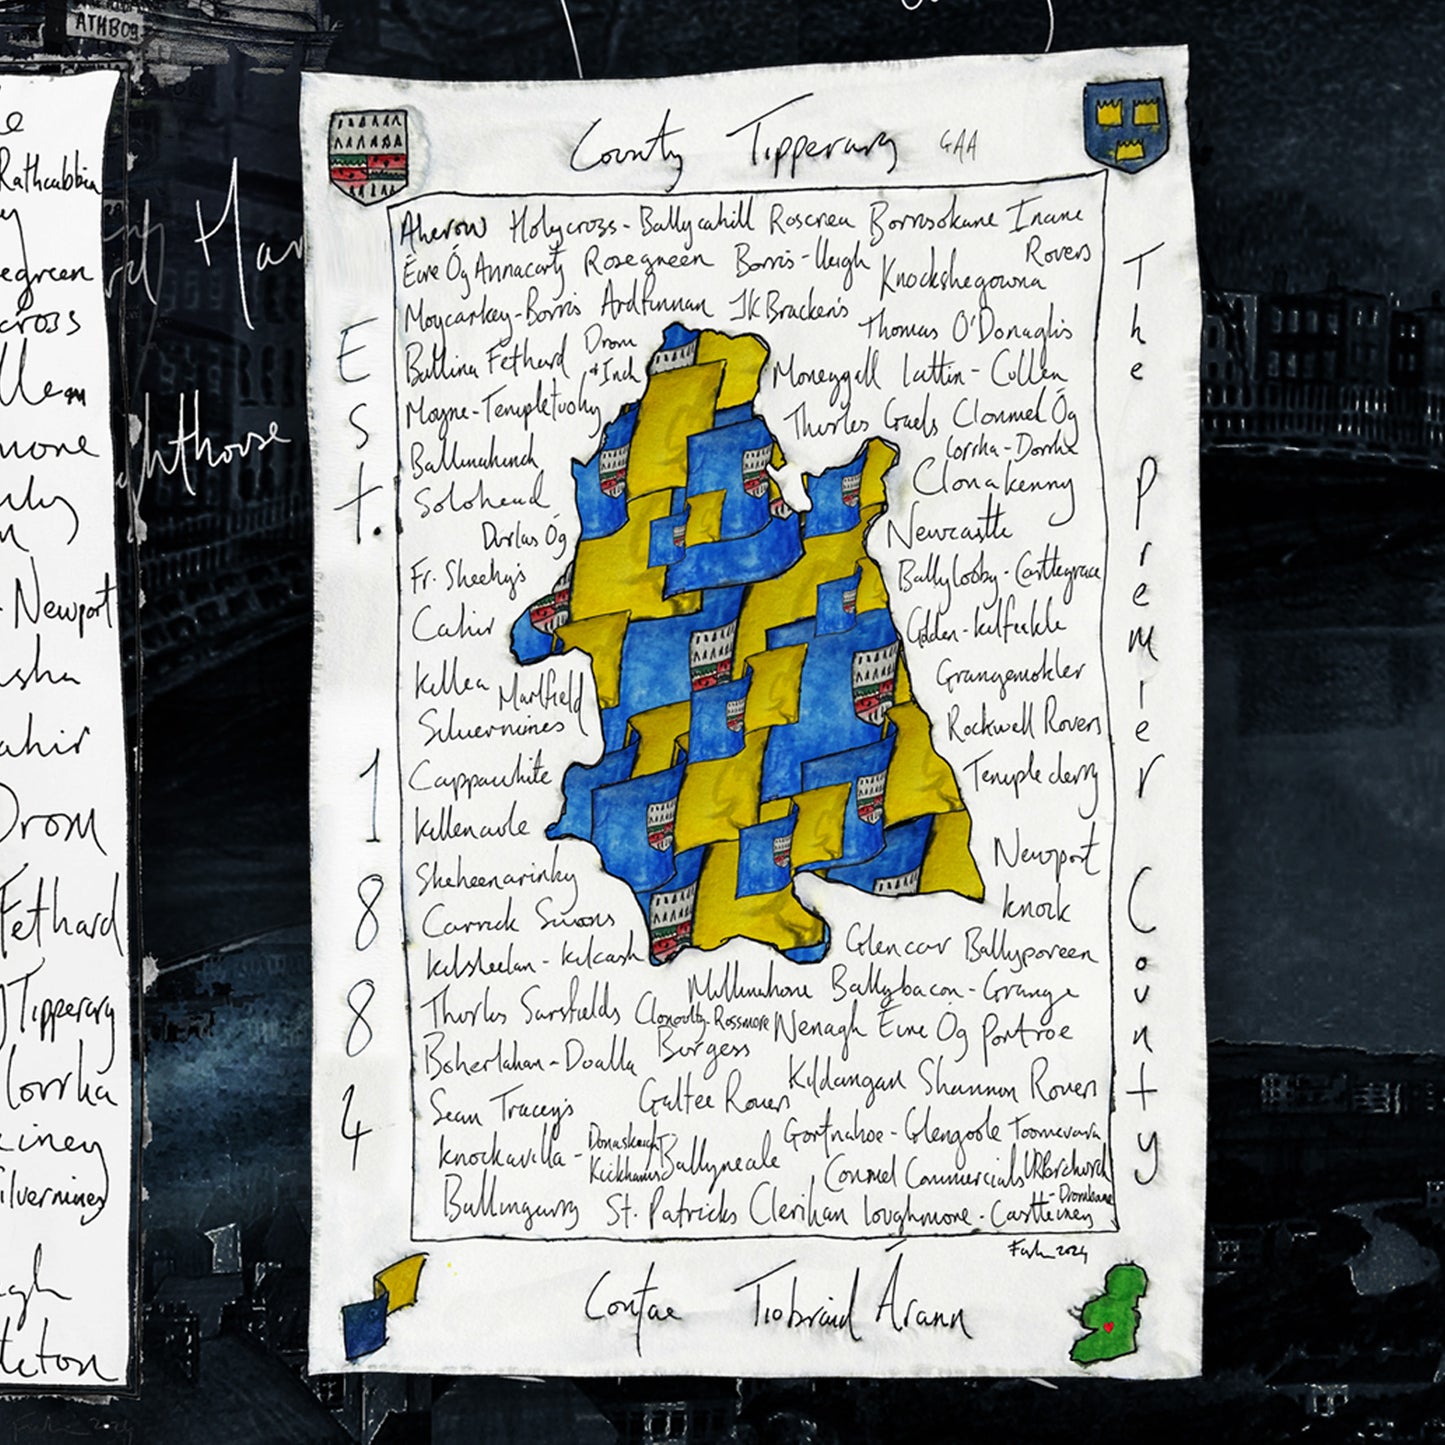 ATHBOY
County Tipperary GAA
Aherlow Holycross-Ballycahill Roscrea Borrisokane Inane
Rovers
Éire Óg Annacarty Rosegreen Borris-Ileigh Knockshegowna
Moycarkey-Borris Ardfinnan JK Brackens
Thomas O'Donaghs
Ballina Fethard Drom
& Inch
Moneygall Lattin-Cullen
Moyne-Templetuohy
Thurles Gaels Clonmel Óg
Lorrha-Dorrha
Ballinahinch
Clonakenny
Solohead
Newcastle
Durlas Óg
Fr. Sheehy's
Ballylooby-Castlegrace
Cahir
Golden-Kilfeakle
Killea Marlfield
Grangemokler
Silvermines
Rockwell Rovers
Cappawhite
Templederry
Killenaule
Newport
Skeheenarinky
Knock
Carrick Swans
Glencar Ballyporeen
Kilsheelan-Kilcash
Mullinahone Ballybacon-Grange
Thurles Sarsfields Clonoulty-Rossmore Nenagh Éire Óg Portroe
Boherlahan-Dualla Burgess
Kildangan Shannon Rovers
Sean Tracey's Galtee Rovers
Gortnahoe-Glengoole Toomevara
Knockavilla-Donaskeigh
Kickhams Ballyneale
Conmel Commercials Upperchurch
-Drombane
Ballingarry St. Patricks Clerihan Loughmore-Castleiney
2024
Contae Tiobraid Árann
Est.
1884
The Premier County
Rathcabbin
Newport
ahir
Drom
Fethard
Tipperary
Lorrha
ilvermines
Har
ghthouse